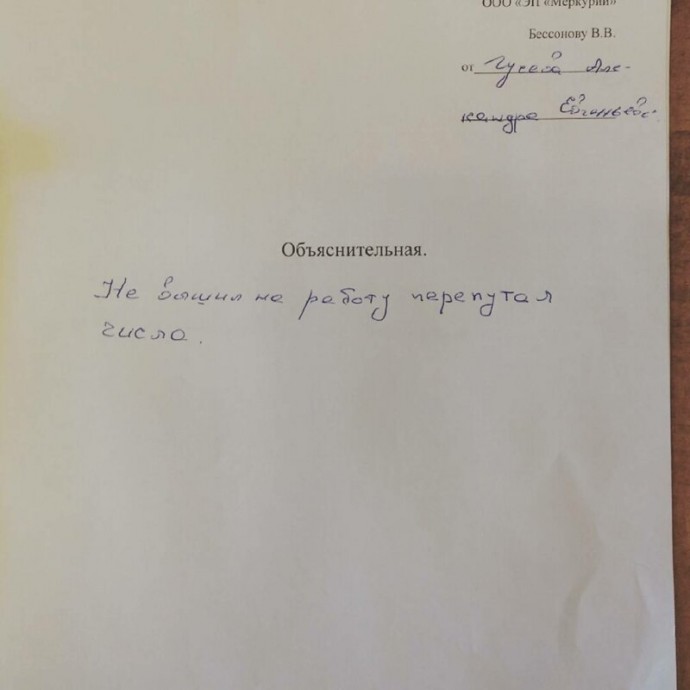 ООО «ЭП «Меркурий»
Бессонову В.В.
от Гусева Але-
кандра
Объяснительная.
Не вышил на работу перепутал
числа.